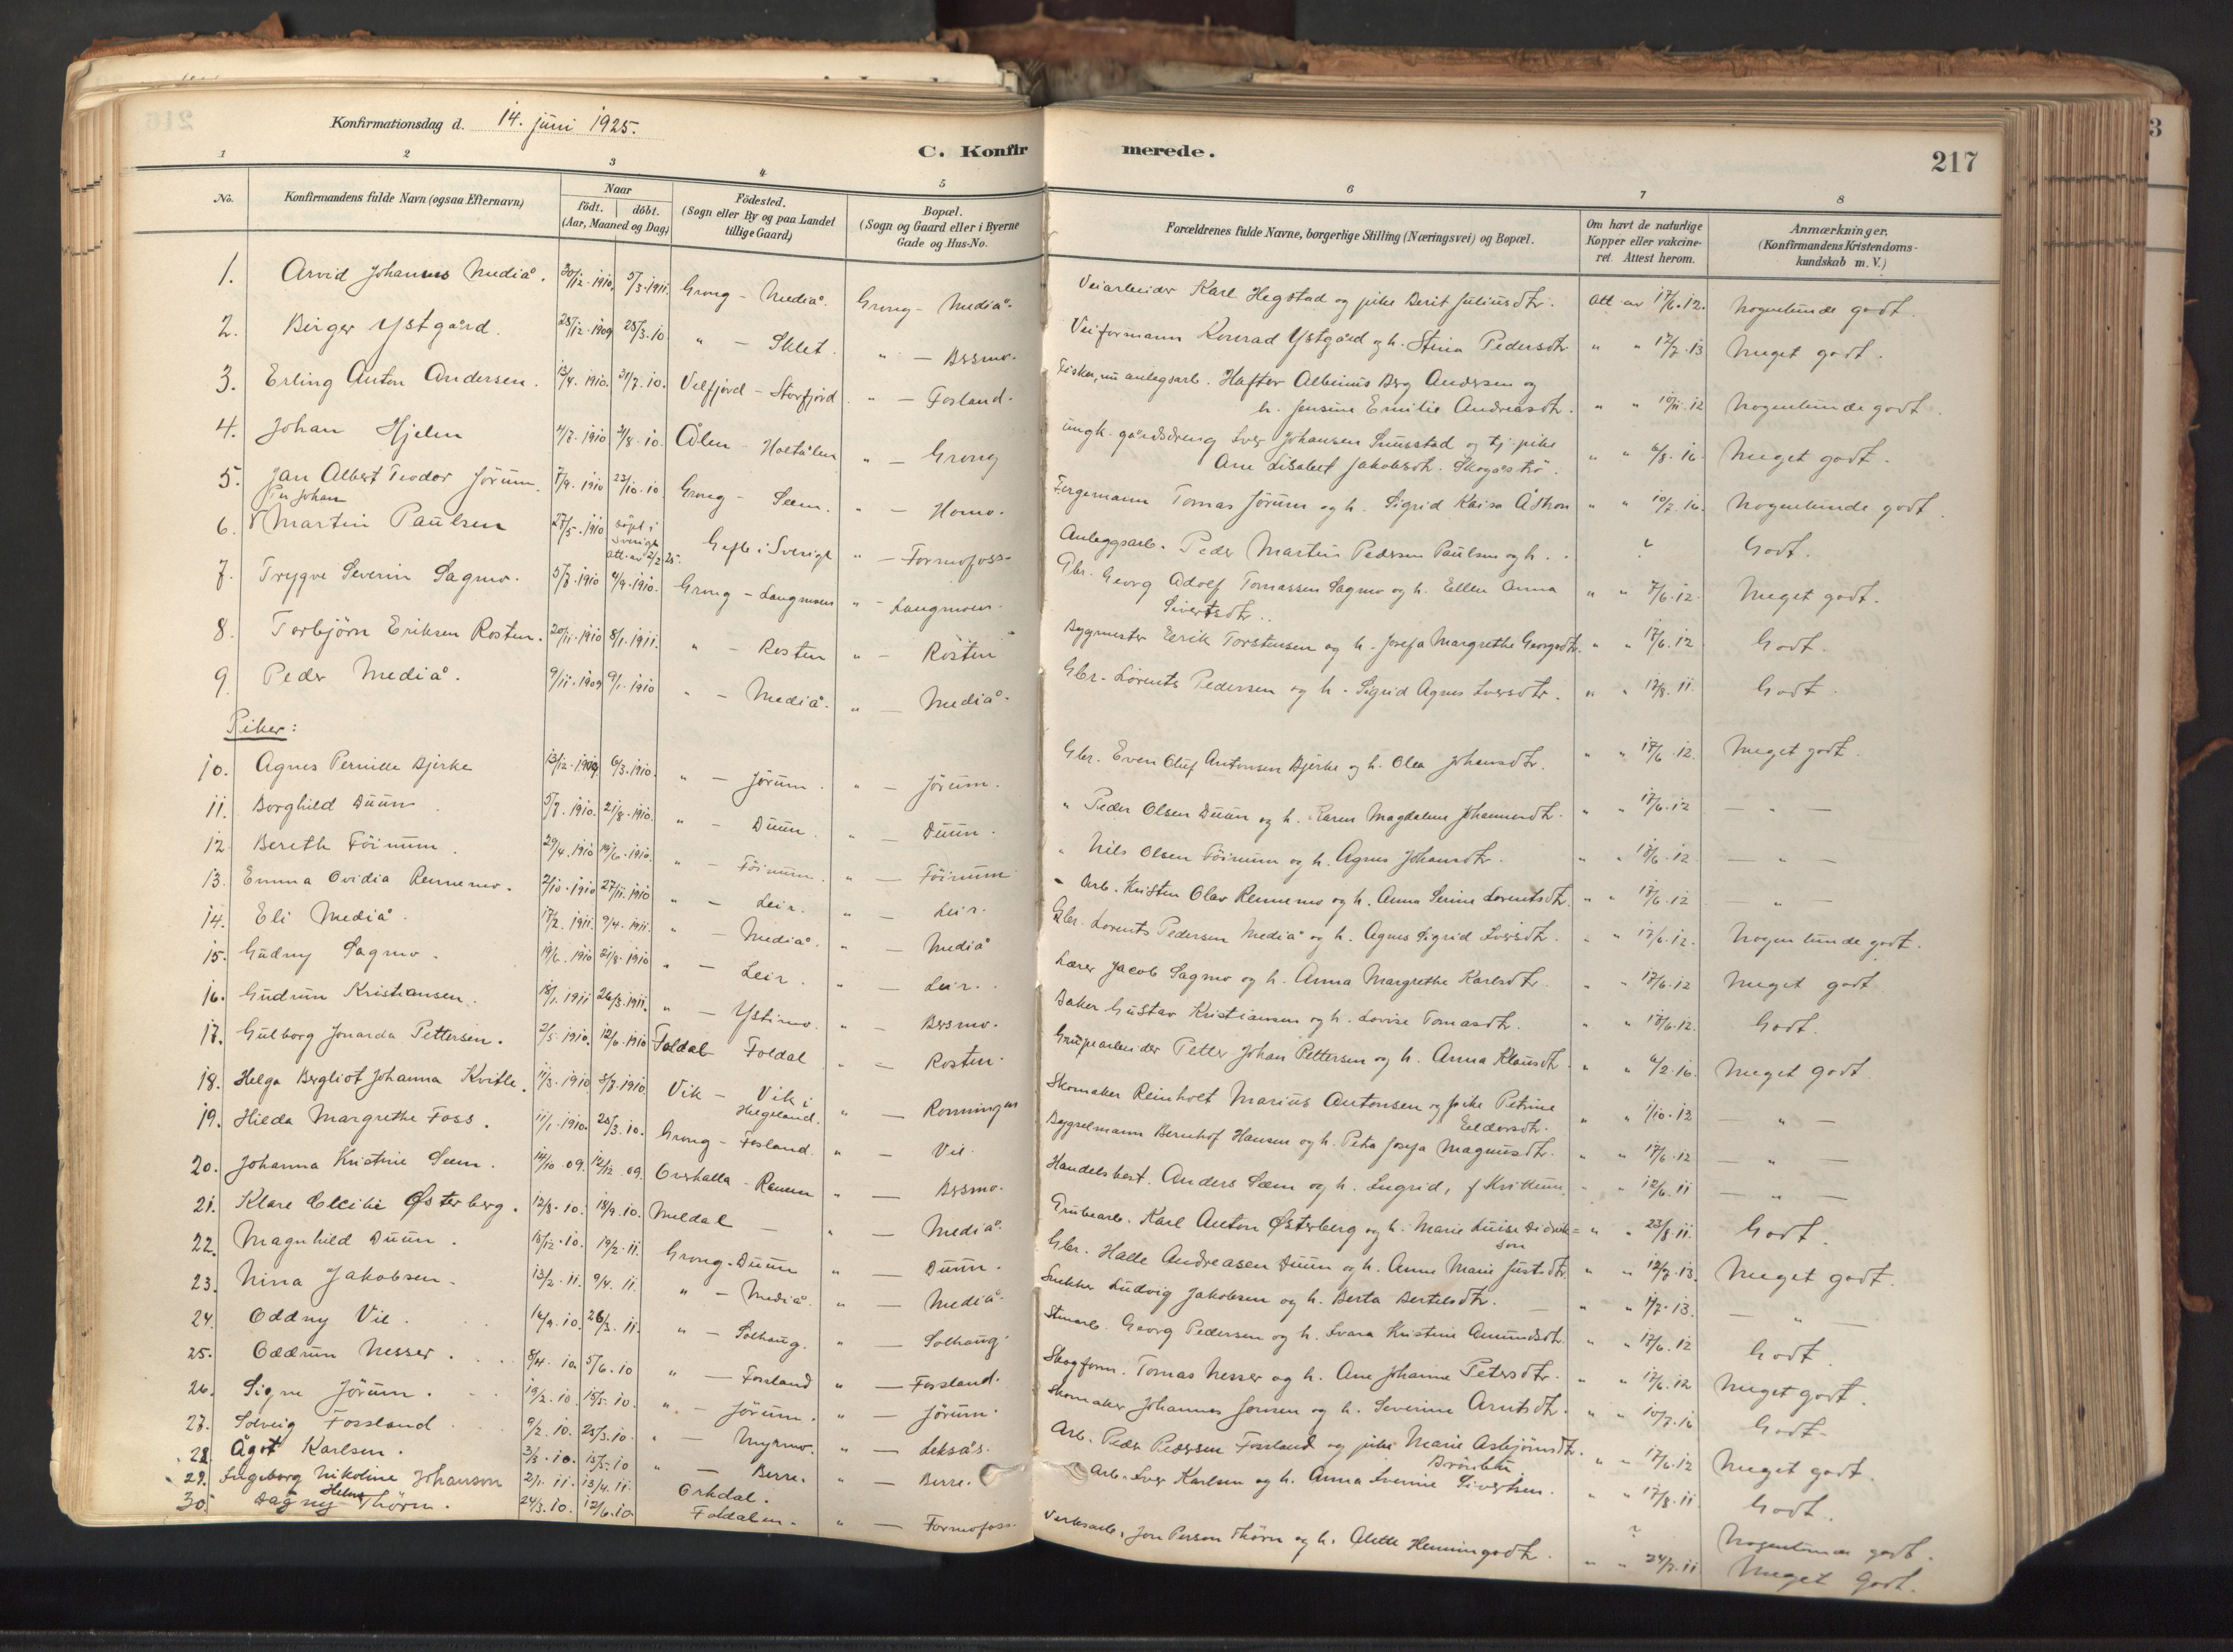 Konfirmationsdag d. 14. juni 1925.
C. Konfirmerede.
217
1 2 3 4 5 6 7 8
No.
Konfirmandens fulde Navn (ogsaa Efternavn)
Naar
födt. | döbt.
(Aar, Maaned og Dag)
Födested.
(Sogn eller By og paa Landet
tillige Gaard)
Bopæl.
(Sogn og Gaard eller i Byerne
Gade og Hus-No.
Forældrenes fulde Navne, borgerlige Stilling (Næringsvei) og Bopæl.
Om havt de naturlige
Kopper eller vakcine-
ret. Attest herom.
Anmærkninger.
(Konfirmandens Kristendoms-
kundskab m. V.)
1. Arvid Johannes Mediå. 30/12.1910. 5/3.1911. Grong - Mediå. Grong - Mediå. Veiarbeider Karl Hegstad og pike Berit Juliusdtr. Att. av 17/6.12. Nogenlunde godt.
2. Birger Ystgård. 28/12.1909 28/3.10. " - Sklet. " - Bssmo. Veiformann Konrad Ystgård og h. Stina Pedersdtr. " " 17/7.13 Meget godt.
3. Erling Anton Andersen. 13/4.1910. 31/7.10. Velfjord - Storfjord. " - Fosland. Fisker, nu anlegsarb. Hafter Albinius Berg Andersen og
h. Jensine Emilie Andreasdtr. " " 10/11.12 Nogenlunde godt.
4. Johan Hjelm 4/7.1910 21/8.10. Ålen - Holtålen " - Grong ungk. gårdsdreng Iver Johansen Snusstad og tj. pike
Ane Lisabet Jakobsdtr. Skogåstrø. " " 6/8.16 Meget godt.
5. Jan Albert Teodor Jörum. 7/9.1910 23/10.10. Grong - Seem. " - Homo. Fergemann Tomas Jörum og h. Sigrid Kaisa Åström " " 10/7.16. Nogenlunde godt.
6. Per Johan
Martin Paulsen 27/5.1910. döpt i
Sverige
att. av 2/2 25. Gefle i Sverige " - Formofoss. Anleggsarb. Peder Martin Pedersen Paulsen og h. . . Godt.
7. Trygve Severin Sagmo. 5/7.1910 4/9.1910. Grong - Langmoen " - Langmoen. Gbr. Georg Adolf Tomassen Sagmo og h. Ellen Anna
Sivertsdtr. " " 7/6.12. Meget godt.
8. Torbjörn Eriksen Rosten. 20/11.1910 8/1.1911. " - Rosten " - Rosten Bygmester Eerik Torstensen og h. Josefa Margrethe Georgsdtr. " " 17/6.12 Godt.
9. Peder Mediå. 9/11.1909 9/1.1910 " - Mediå. " - Mediå. Gbr. Lorents Pedersen og h. Sigrid Agnes Iversdtr. " " 17/8.11. Godt.
Piker:
10. Agnes Pernille Bjerke 13/12.1909. 6/3.1910. " - Jörum. " - Jörum. Gbr. Even Oluf Antonsen Bjerke og h. Olea Johansdtr. " " 17/6.12. Meget godt.
11. Borghild Duun. 5/7.1910. 21/8.1910. " - Duun. " - Duun. " Peder Olsen Duun og h. Karen Magdalena Johannesdtr. " " 17/6.12 — " —
12. Bereth Föinum. 29/4.1910 19/6.1910. " - Föinum. " - Föinum " Nils Olsen Föinum og h. Agnes Johansdtr. " " 17/6.12 — " —
13. Emma Ovidia Rennemo. 2/10.1910 27/11.1910 " - Leir. " - Leir. Arb. Kristen Olav Rennemo og h. Anna Serine Lorentsdtr. " " 17/6.12 — " —
14. Eli Mediå. 17/2.1911. 9/4.1911. " - Mediå. " - Mediå Gbr. Lorents Pedersen Mediå og h. Agnes Sigrid Iversdtr. " " 17/6.12. Nogenlunde godt.
15. Gudny Sagmo. 19/6.1910 21/8.1910 " - Leir. " - Leir. Lærer Jacob Sagmo og h. Anna Margrethe Karlsdtr. " " 17/6.12 Meget godt
16. Gudrun Kristiansen. 18/1.1911 26/3.1911. " - Ystimo. " - Bersmo. Baker Gustav Kristiansen og h. Lovise Tomasdtr. " " 17/6.12. Godt.
17. Gulborg Jonarda Pettersen. 2/5.1910. 12/6.1910 Foldal Foldal " - Rosten. Grupearbeider Petter Johan Pettersen og h. Anna Klausdtr. " " 6/2.16. Meget godt.
18. Helga Bergliot Johanna Kvitle. 11/3.1910 3/7.1910. Vik - Vik i
Helgeland. " - Romningen Skomaker Reinholt Marius Antonsen og pike Petrine
Eeldersdtr. " " 1/10.12 — " —
19. Hilda Margrethe Foss. 11/1.1910. 28/3.10. Grong - Fosland. " - Vie. Bygselmann Bernhof Hansen og h. Petra Josefa Magnusdtr. " " 17/6.12 — " —
20. Johanna Kristine Seem. 14/10.09. 12/12.09. Overhalla - Ranem " - Bersmo. Handelsbest. Anders Sæm og h. Ingrid, f. Kvittum. " " 12/6.11 — " —
21. Klare Cecilie Østerberg. 12/8.10. 18/9.10. Meldal - " - Mediå. Grubearb. Karl Anton Østerberg og h. Marie Luise Didrik=
son " " 23/8.11. Godt.
22. Magnhild Duun. 15/12.10. 19/2.11. Grong - Duun " - Duun. Gbr. Halle Andreasen Duun og h. Anne Marie Justsdtr. " " 12/7.13. Meget godt.
23. Nina Jakobsen. 13/2.11. 9/4.11. " - Mediå. " - Mediå. Snekker Ludvig Jakobsen og h. Berta Bertelsdtr. " " 1/7.13. — " —
24. Oddny Vie. 14/9.10. 26/3.11. " - Solhaug. " - Solhaug. Stenarb. Georg Pedersen og h. Svara Kristine Amundsdtr. " " 17/6.12 Godt.
25. Oddrun Nesser. 8/4.10. 5/6.10 " - Fossland " - Fossland. Skogform. Tomas Nesser og h. Ane Johanne Petersdtr. " " 17/6.12 Meget godt.
26. Signe Jörum. 19/2.10 15/5.10. " - Jörum. " - Jörum. Skomaker Johannes Jensen og h. Severine Arntsdtr. " " 10/7.16 Godt.
27. Solveig Fossland 9/2.10. 25/3.10. " - Myrmo. " - Leksås. Arb. Peder Pedersen Fossland og pike Marie Asbjörnsdtr.
" " 17/6.12 Meget godt.
28. Ågot Karlsen. 3/3.10. 15/5.10 " - Berre. " - Berre. Arb. Iver Karlsen og h. Anna Iverine Sivertsen. " " 17/8.11. Godt.
29. Ingeborg Nikoline Johanson 2/1.11. 13/4.11. Orkdal. ? Nogenlunde godt.
30. Dagny Helene Thörn. 24/3.10. 12/6.10. Foldalen. " - Formofoss. Verksarb. Jon Person Thörn og h. Alette Henningsdtr. " " 24/7.11 Meget Godt.